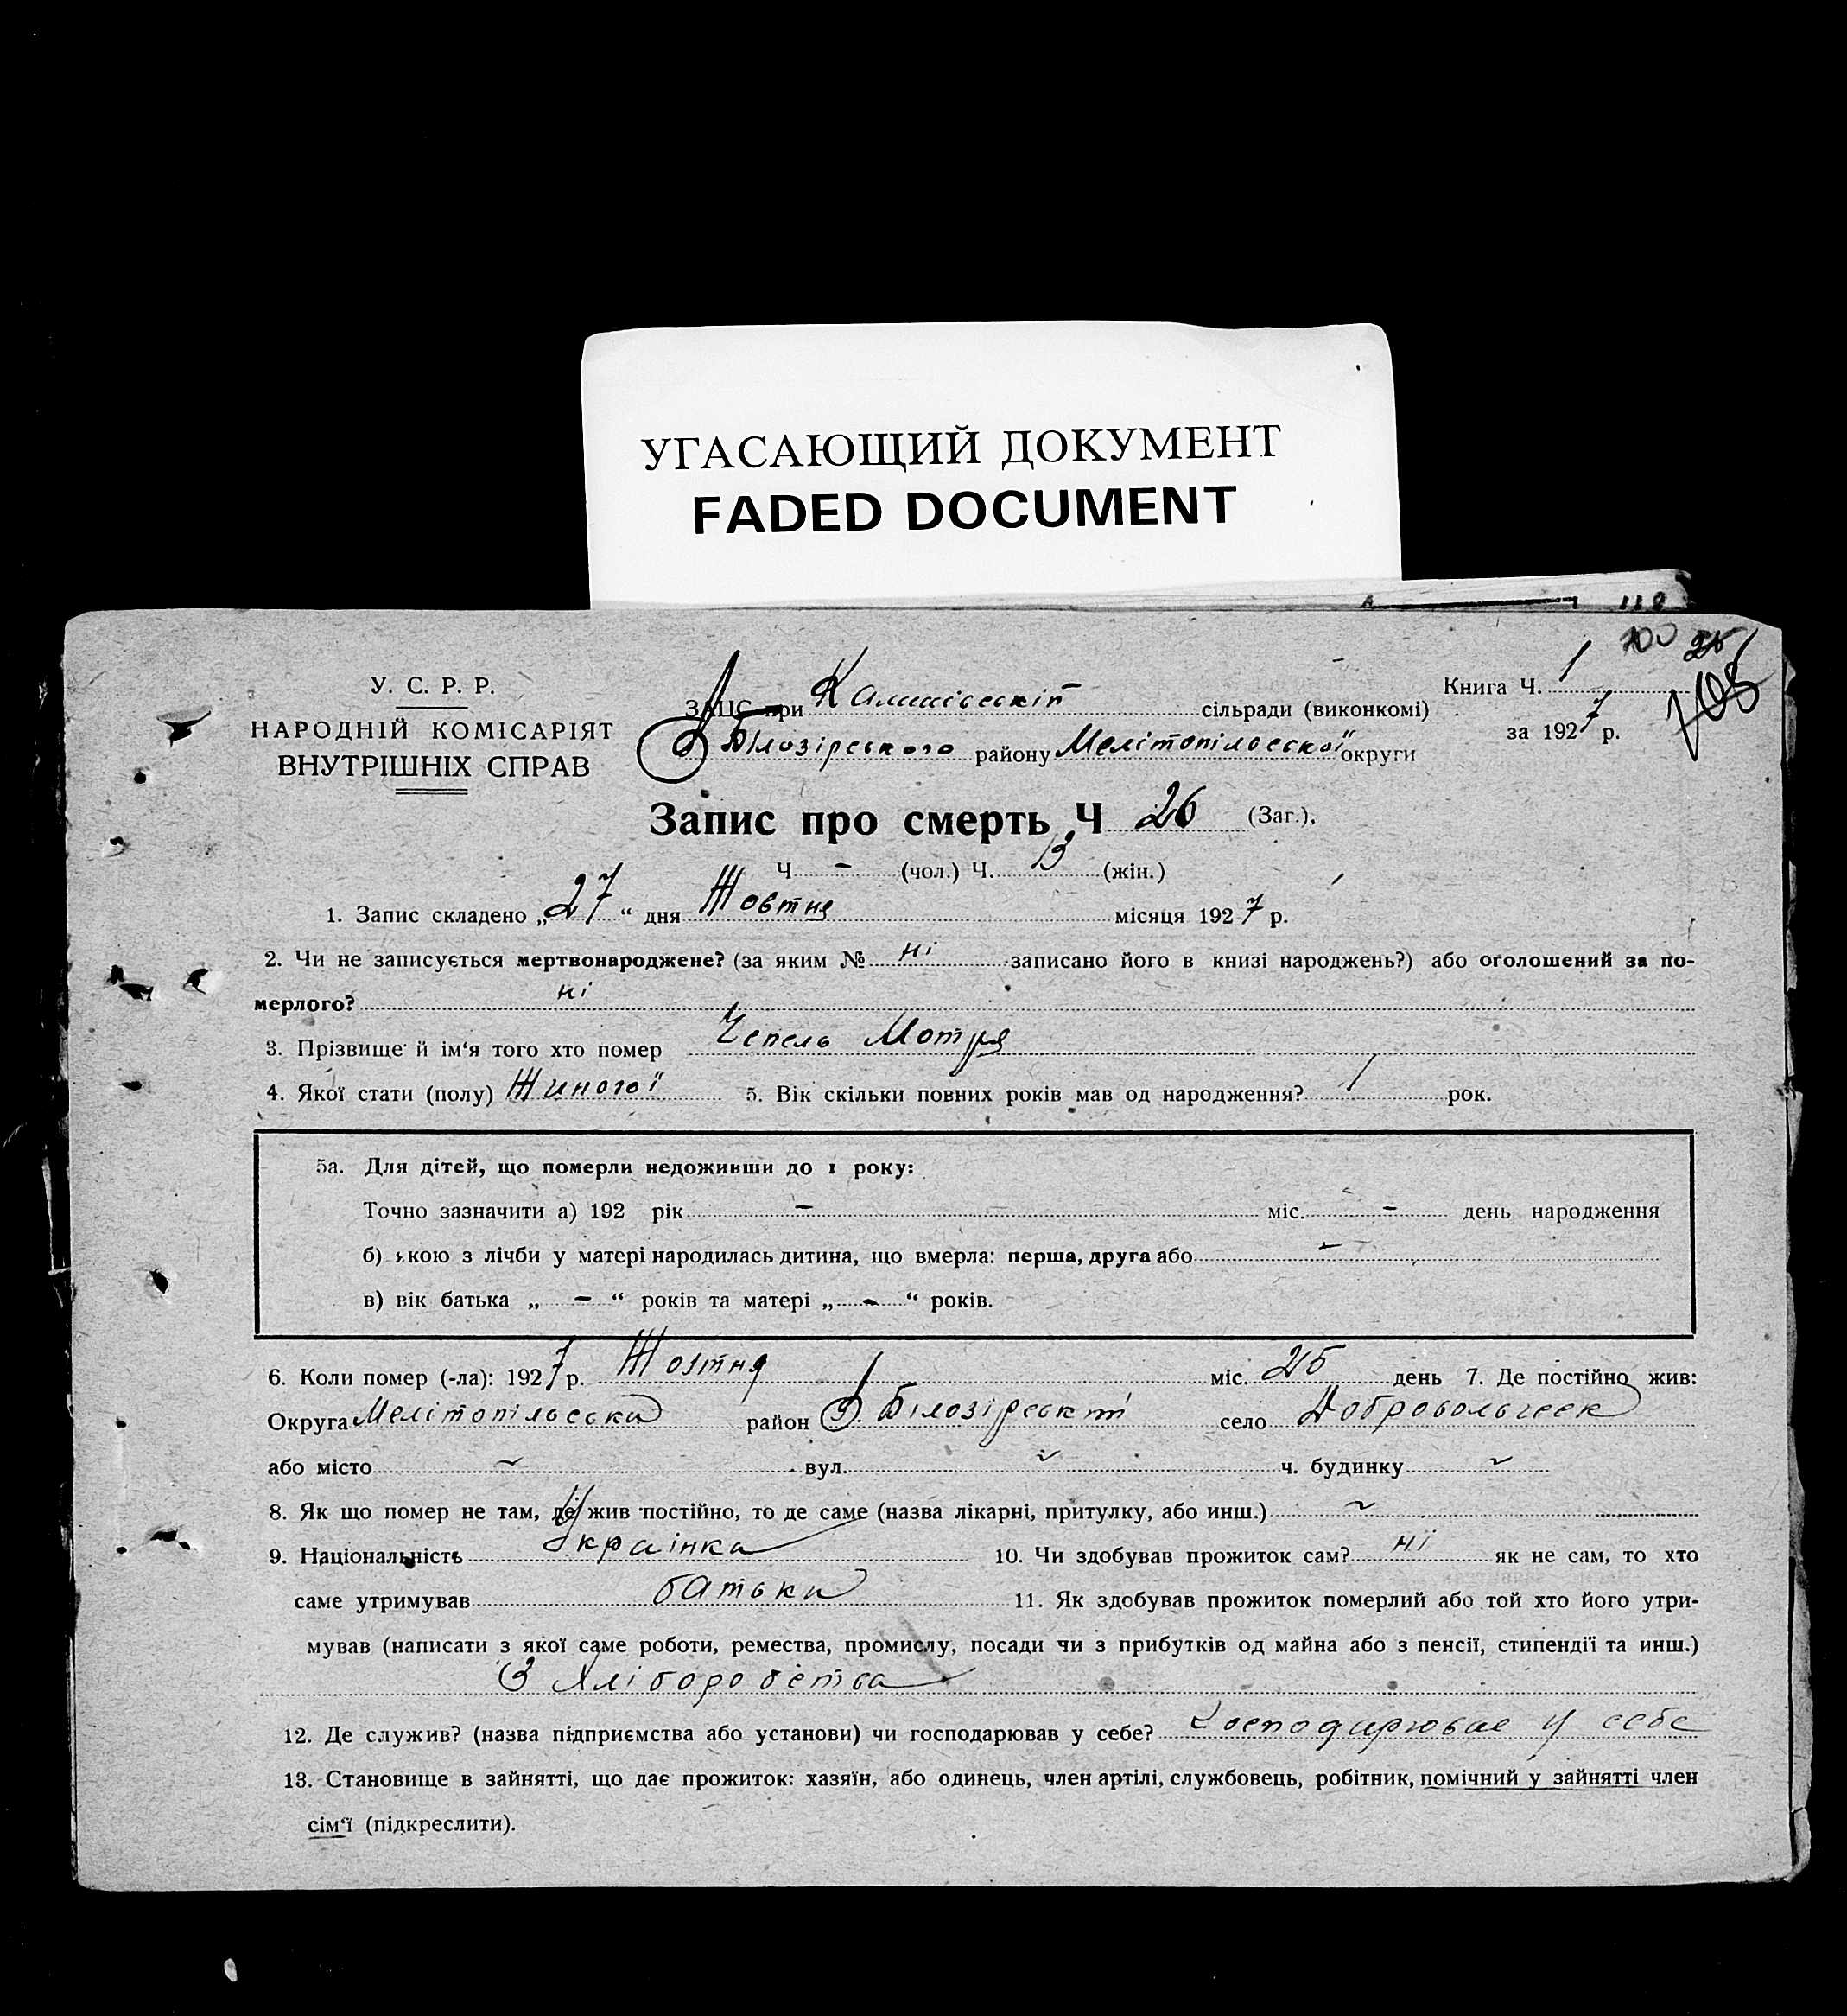 УГАСАЮЩИЙ ДОКУМЕНТ
FADED DOCUMENT
У. С. Р. Р.
НАРОДНІЙ КОМІСАРІЯТ
ВНУТРІШНІХ СПРАВ
ЗАЦС при сільради (виконкомі)
Білозірського району Мелітопільської округи
Книга Ч. 1
за 1927 р.
105
Запис про смерть Ч 26 (Заг.),
Ч - (чол.) Ч. 13 (жін.)
1. Запис складено „27“ дня Жовтня місяця 1927 р.
2. Чи не записується мертвонароджене? (за яким № ні записано його в книзі народжень?) або оголошений за по-
мерлого? ні
3. Прізвище й ім'я того хто помер Чепель Мотря
4. Якої стати (полу) Жиногої 5. Вік скільки повних років мав од народження? 1 рок.
5а. Для дітей, що померли недоживши до 1 року:
Точно зазначити а) 192 рік - міс. - день народження
б) якою з лічби у матері народилась дитина, що вмерла: перша, друга або -
в) вік батька „ - “ років та матері „ - “ років.
6. Коли помер (-ла): 1927 р. Жовтня міс. 25 день 7. Де постійно жив:
Округа Мелітопільська район Білозірськт село
або місто ~ вул. ~ ч. будинку ~
8. Як що помер не там, де жив постійно, то де саме (назва лікарні, притулку, або инш.) ~
9. Національність Українка 10. Чи здобував прожиток сам? ні як не сам, то хто
саме утримував батьки 11. Як здобував прожиток померлий або той хто його утри-
мував (написати з якої саме роботи, ремества, промислу, посади чи з прибутків од майна або з пенсії, стипендії та инш.)
З Хліборобства
12. Де служив? (назва підприємства або установи) чи господарював у себе? Господарював у себе
13. Становище в зайнятті, що дає прожиток: хазяїн, або одинець, член артілі, службовець, робітник, помічний у зайнятті член
сім'ї (підкреслити).